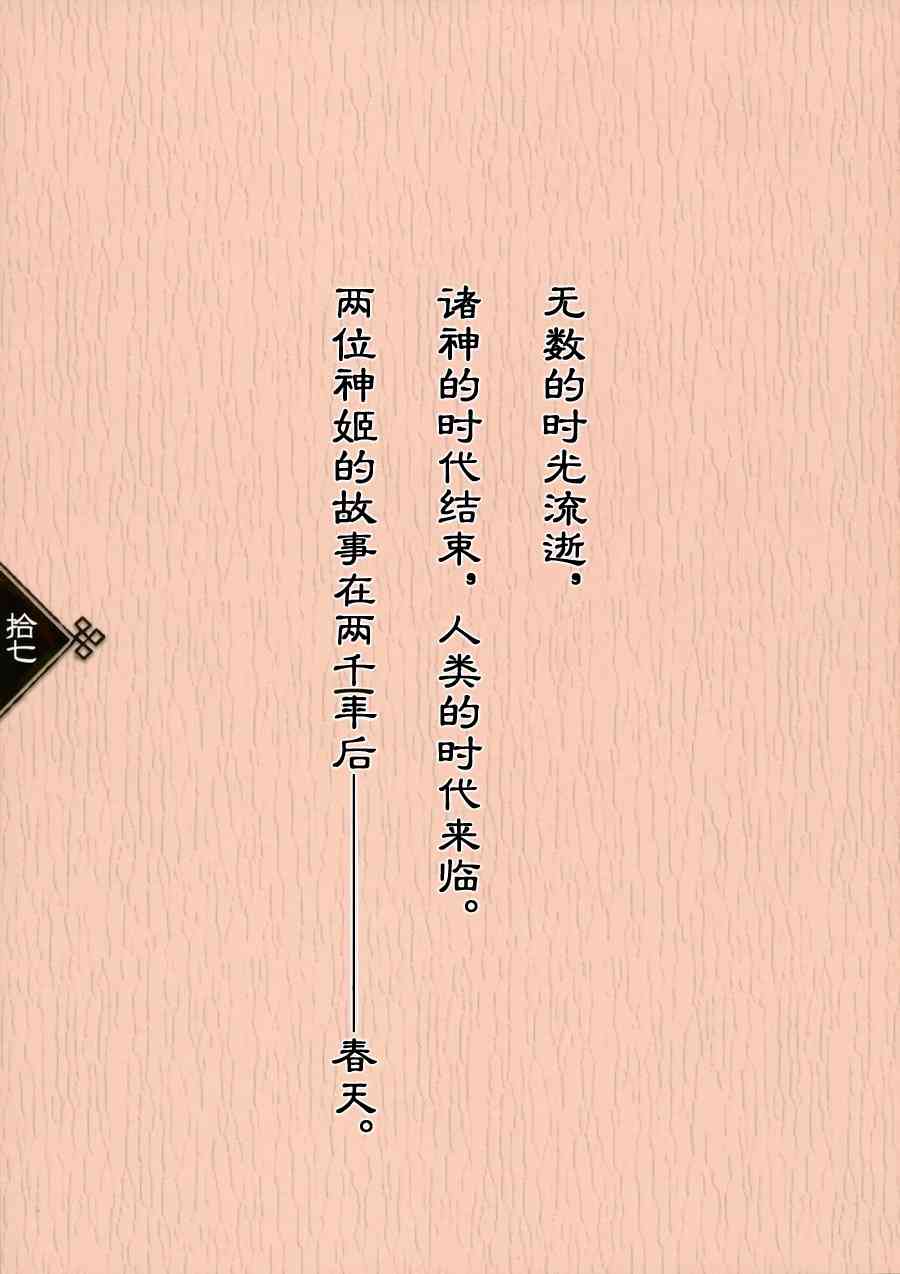 无数的时光流逝，
诸神的时代结束，人类的时代来临。
两位神姬的故事在两千年后——————春天。
拾七